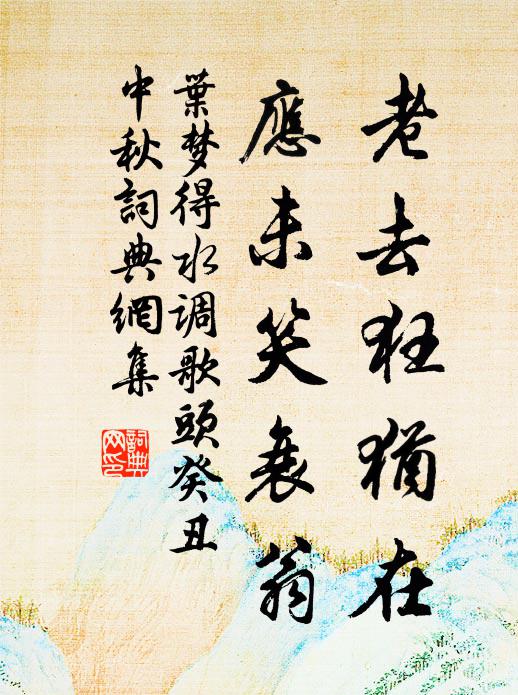 老去狂猶在
應未笑衰翁
葉梦得水调歌頭癸丑
中秋詞典網集
詞典网印